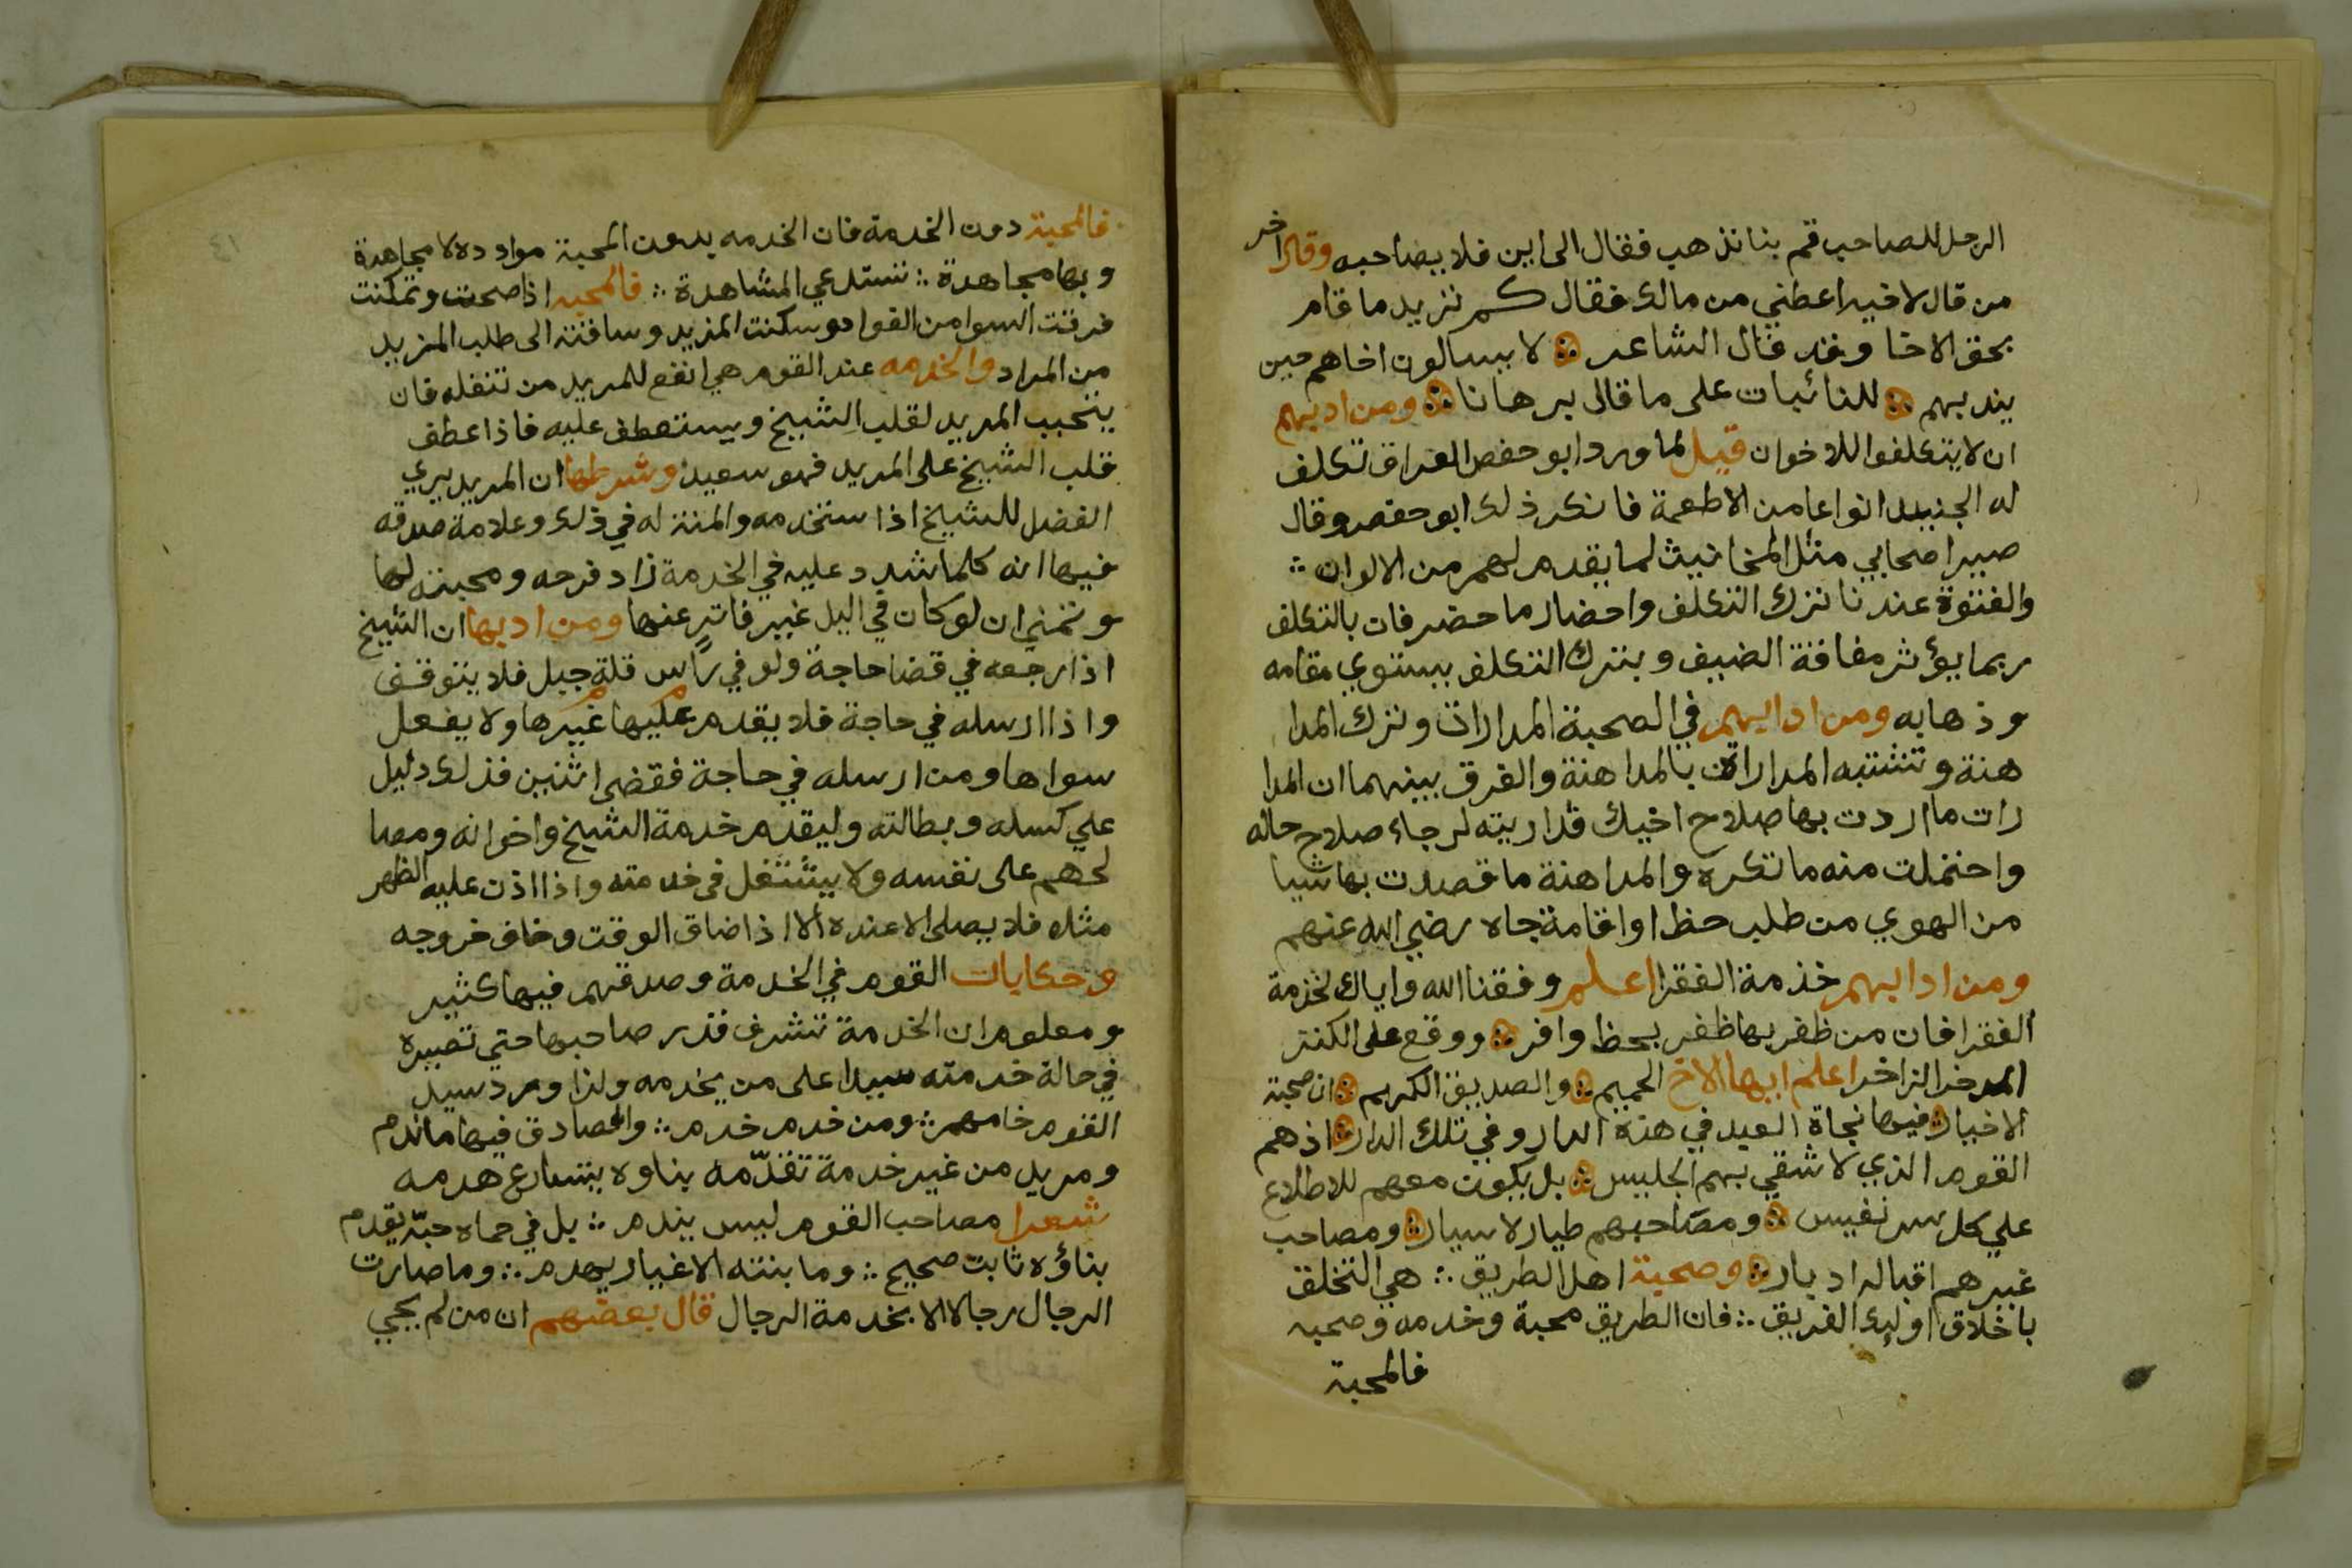 الرجل للصاحب قم بنا نذهب فقال الى اين فلا يصاحبه وقال اخر
من قال لاخيه اعطني من مالك فقال كم تريد ما قام
بحق الاخا وقد قال الشاعر لا يسالون اخاهم حين
يندبهم للنائبات على ما قال برهانا ومن ادبهم
ان لا يتكلفوا للاخوان قيل لما ورد ابو حفص العراق تكلف
له الجنيد انواعا من الاطعمة فانكر ذلك ابو حفص وقال
صير اصحابي مثل المخانيث لما يقدم لهم من الالوان
والفتوة عندنا ترك التكلف واحضار ما حضر فان بالتكلف
ربما يؤثر مفاقة الضيف وبترك التكلف يستوي مقامه
وذهابه ومن ادابهم في الصحبة المدارات وترك المدا
هنة وتشتبه المدارات بالمداهنة والفرق بينهما ان المدا
رات ما اردت بها صلاح اخيك فداريته لرجاء صلاح حاله
واحتملت منه ما تكره والمداهنة ما قصدت بها شيا
من الهوي من طلب حظ او اقامة جاه رضي الله عنهم
ومن ادابهم خذمة الفقرا اعلم وفقنا الله واياك لخدمة
الفقرا فان من ظفر بها ظفر بحظ وافر ووقع على الكنز
المدخر الزاخر اعلم ايها الاخ الحميم والصديق الكريم ان صحبة
الاخيار فيها نجاة العبد في هذه الدار وفي تلك الدار اذ هم
القوم الذي لا شقي بهم الجليس بل يكون معهم للاطلاع
علي كل سر نفيس ومصاحبهم طيار لا سيار ومصاحب
غيرهم اقباله ادبار وصحبة اهل الطريق هي التخلق
باخلاق اوليء الفريق فان الطريق محبة وخدمه وصحبه
فالمحبة
فالمحبة دون الخدمة فان الخدمه بدون المحبة مواددة لا مجاهدة
وبها مجاهدة تستدعي المشاهدة فالمحبه اذا صحت وتمكنت
فرقت السوا من الفواد وسكنت المزيد وساقته الى طلب المزيد
من المراد والخدمه عند القوم هي انفع للمريد من تنفله فان
يتحبب المريد لقلب الشيخ ويستعطف عليه فاذا عطف
قلب الشيخ على المريد فهو سعيد وشرطها ان المريد يري
الفضل للشيخ اذا ستخدمه والمنة له في ذلك وعلامة صدقه
فيها انه كلما شدد عليه في الخدمة زاد فرحه ومحبته لها
وتمني ان لو كان في اليل غير فاتر عنها ومن ادبها ان الشيخ
اذا رجعه في قضا حاجة ولو في راس قلة جبل فلا يتوقف
واذا ارسله في حاجة فلا يقدم عليها غيرها ولا يفعل
سواها ومن ارسله في حاجة فقضى اثنين فذلك دليل
علي كسله وبطالته وليقدم خدمة الشيخ واخوانه ومصا
لحهم على نفسه ولا يشتغل في خدمته واذا اذن عليه الظهر
مثلا فلا يصلى الا عنده الا اذا ضاق الوقت وخاف خروجه
وحكايات القوم في الخدمة وصدقهم فيها كثير
ومعلوم ان الخدمة تشرف قدر صاحبها حتي تصيره
في حالة خدمته سيدا على من يخدمه ولذا ورد سيد
القوم خامهم ومن خدم خدم والصادق فيها ما ندم
ومريد من غير خدمة تقدّمه بناوه يتسارع هدمه
شعرا مصاحب القوم ليس يندم بل في حماه حبّه يقدم
بناؤه ثابت صحيح وما بنته الاغيار يهدم وما صارت
الرجال رجالا الا بخدمة الرجال قال بعضهم ان من لم يجي